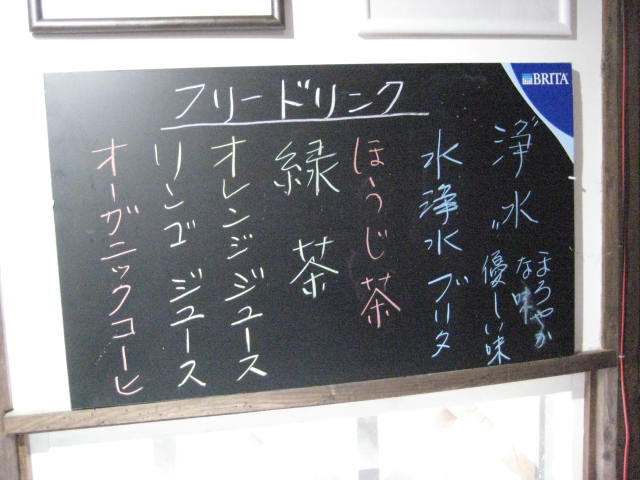 フリードリンク
BRITA
浄水
まろやか
な味
優しい味
水 浄水 ブリタ
ほうじ茶
緑茶
オレンジジュース
リンゴジュース
オーガニックコーヒ